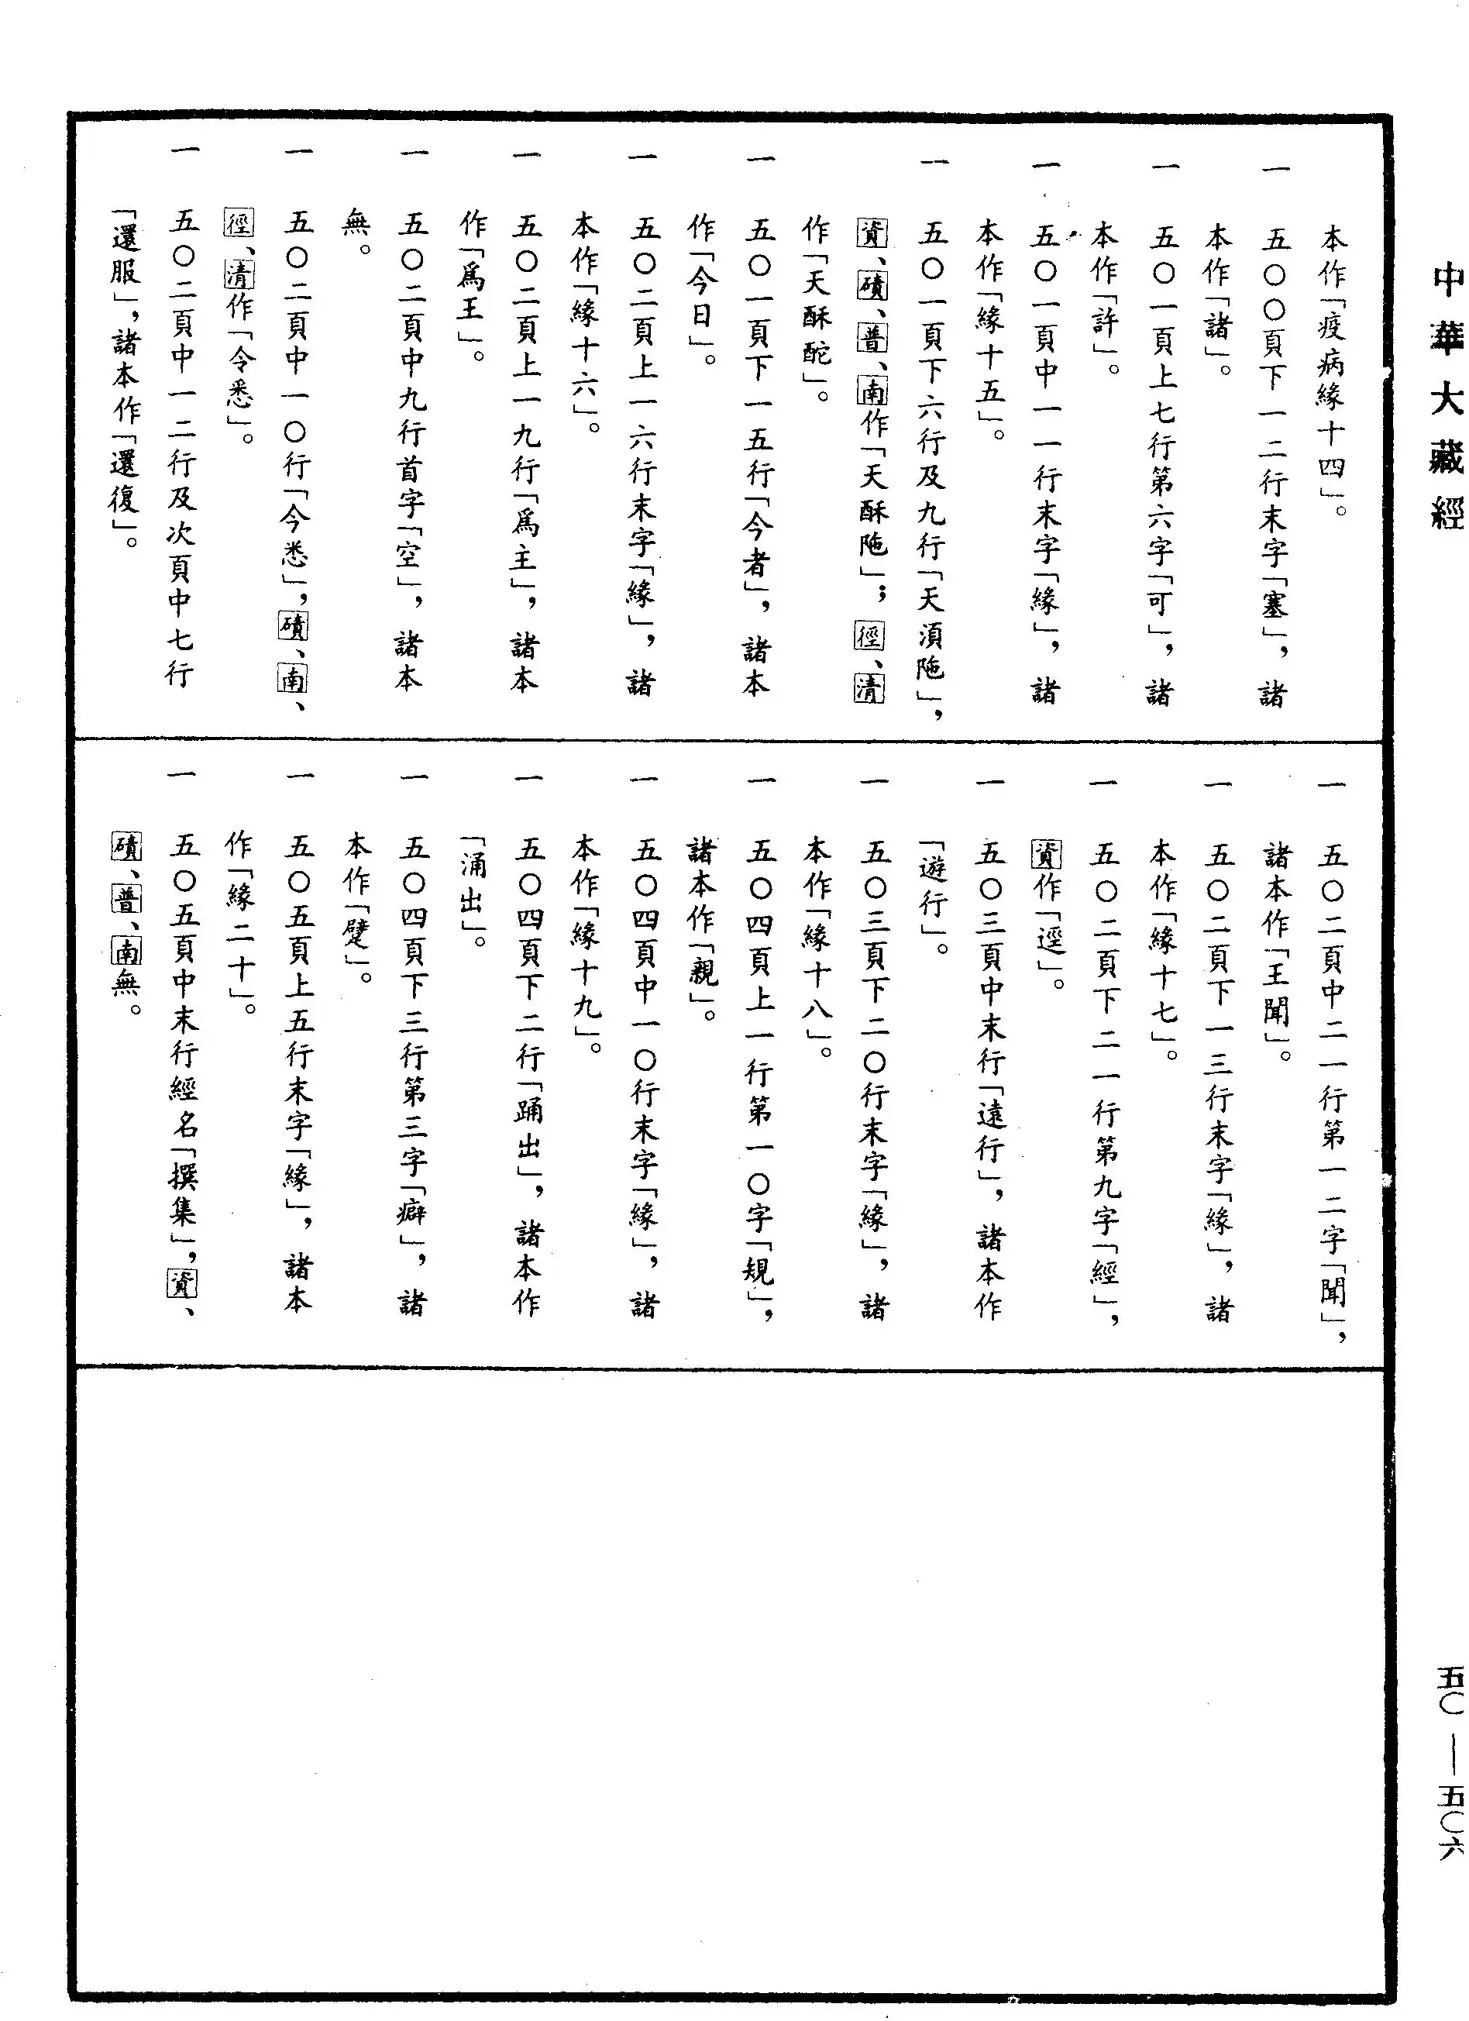 中華大藏經
本作「疫病緣十四」。
一 五〇〇頁下一二行末字「塞」，諸
本作「諸」。
一 五〇一頁上七行第六字「可」，諸
本作「許」。
一 五〇一頁中一一行末字「緣」，諸
本作「緣十五」。
一 五〇一頁下六行及九行「天湏陁」，
資、磧、普、南作「天酥陁」；徑、清
作「天酥酡」。
一 五〇一頁下一五行「今者」，諸本
作「今日」。
一 五〇二頁上一六行末字「緣」，諸
本作「緣十六」。
一 五〇二頁上一九行「爲主」，諸本
作「爲王」。
一 五〇二頁中九行首字「空」，諸本
無。
一 五〇二頁中一〇行「今悉」，磧、南、
徑、清作「令悉」。
一 五〇二頁中一二行及次頁中七行
「還服」，諸本作「還復」。
一 五〇二頁中二一行第一二字「聞」，
諸本作「王聞」。
一 五〇二頁下一三行末字「緣」，諸
本作「緣十七」。
一 五〇二頁下二一行第九字「經」，
資作「逕」。
一 五〇三頁中末行「遠行」，諸本作
「遊行」。
一 五〇三頁下二〇行末字「緣」，諸
本作「緣十八」。
一 五〇四頁上一行第一〇字「規」，
諸本作「親」。
一 五〇四頁中一〇行末字「緣」，諸
本作「緣十九」。
一 五〇四頁下二行「踊出」，諸本作
「涌出」。
一 五〇四頁下三行第三字「癖」，諸
本作「躄」。
一 五〇五頁上五行末字「緣」，諸本
作「緣二十」。
一 五〇五頁中末行經名「撰集」，資、
磧、普、南無。
五〇—五〇六